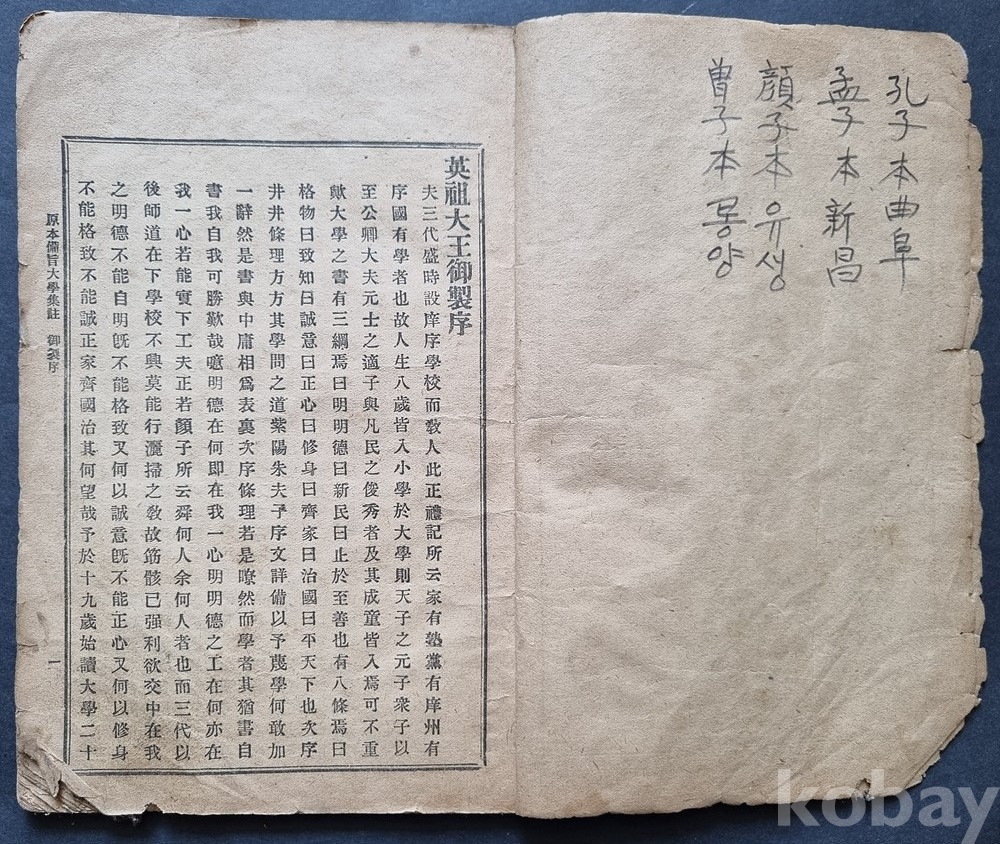 孔子本曲阜
孟子本新昌
顔子本유생
曽子本몽양
英祖大王御製序
夫三代盛時設庠序學校而敎人此正禮記所云家有塾黨有庠州有
序國有學者也故人生八歲皆入小學於大學則天子之元子衆子以
至公卿大夫元士之適子與凡民之俊秀者及其成童皆入焉可不重
歟大學之書有三綱焉曰明明德曰新民曰止於至善也有八條焉曰
格物曰致知曰誠意曰正心曰修身曰齊家曰治國曰平天下也次序
井井條理方方其學問之道紫陽朱夫子序文詳備以予蔑學何敢加
一辭然是書與中庸相爲表裏次序條理若是瞭然而學者其猶書自
書我自我可勝歎哉噫明德在何即在我一心明明德之工在何亦在
我一心若能實下工夫正若顏子所云舜何人余何人者也而三代以
後師道在下學校不興莫能行灑掃之敎故筋骸已强利欲交中在我
之明德不能自明旣不能格致又何以誠意旣不能正心又何以修身
不能格致不能誠正家齊國治其何望哉予於十九歲始讀大學二十
原本備旨大學集註 御製序 一
kobay